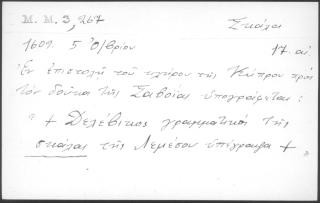 Μ. Μ. 3, 267 Σκάλα
1609. 5 Ὀ/βρίου 17. αἰ
Ἐν ἐπιστολῇ τοῦ κλήρου τῆς Κύπρου πρὸς
τὸν δούκα τῆς Σαβοΐας ὑπογράφεται:
"+ Δελέβικος γραμματικὸς τῆς
σκάλας τῆς Λεμέσου ὑπέγραψα +"